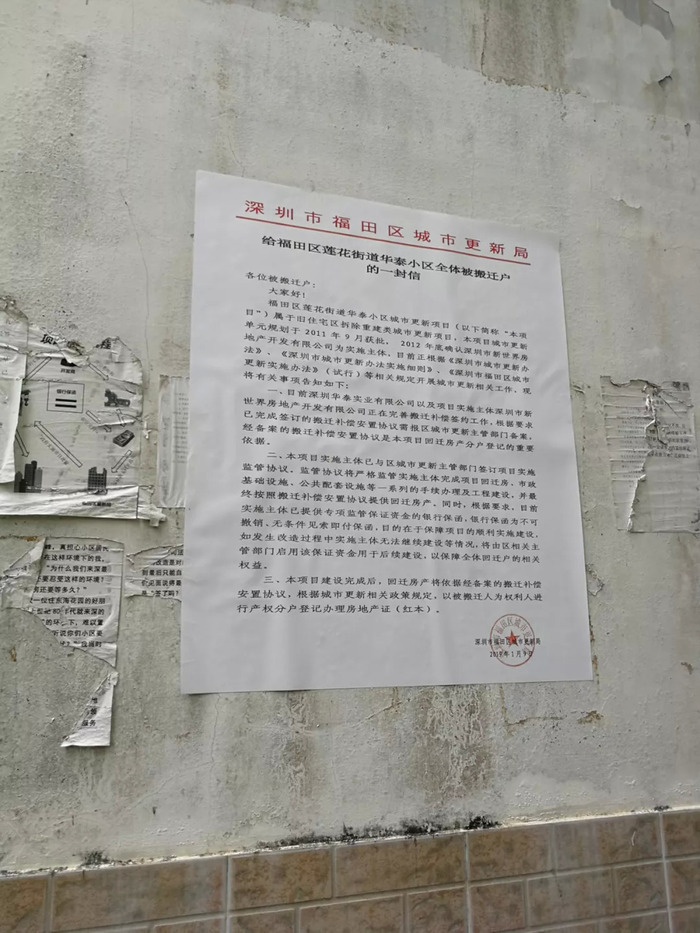 深圳市福田区城市更新局
给福田区莲花街道华泰小区全体被搬迁户
的一封信
各位被搬迁户：
大家好！
福田区莲花街道华泰小区城市更新项目（以下简称“本项
目”）属于旧住宅区拆除重建类城市更新项目，本项目城市更新
单元规划于 2011 年 9 月获批，2012 年底确认深圳市新世界房
地产开发有限公司为实施主体。目前正根据《深圳市城市更新办
法》、《深圳市城市更新办法实施细则》、《深圳市福田区城市更
新实施办法》（试行）等相关规定开展城市更新相关工作。现
将有关事项告知如下：
一、目前深圳华泰实业有限公司以及项目实施主体深圳市新
世界房地产开发有限公司正在完善搬迁补偿签约工作，根据要求
已完成签订的搬迁补偿安置协议需报区城市更新主管部门备案，
经备案的搬迁补偿安置协议是本项目回迁房产分户登记的重要
依据。
二、本项目实施主体已与区城市更新主管部门签订项目实施
监管协议。监管协议将严格监管实施主体完成项目回迁房、市政
基础设施、公共配套设施等一系列的手续办理及工程建设，并最
终按照搬迁补偿安置协议提供回迁房产。同时，根据要求，目前
实施主体已提供专项监管保证资金的银行保函，银行保函为不可
撤销、无条件见索即付保函，目的在于保障项目的顺利实施建设，
如发生改造过程中实施主体无法继续建设等情况，将由区相关主
管部门启用该保证资金用于后续建设，以保障全体回迁户的相关
权益。
三、本项目建设完成后，回迁房产将依据经备案的搬迁补偿
安置协议，根据城市更新相关政策规定，以被搬迁人为权利人进
行产权分户登记办理房地产证（红本）。
深圳市福田区城市更新局
1 月 9 日
银行保函
真担心小区居民
在这样环境下的我，
“为什么我们来深圳
要忍受这样的环境？
还要等多久？”
一位住东海花园的好朋
80年代就来深的
的环
听说你们小区是
服务